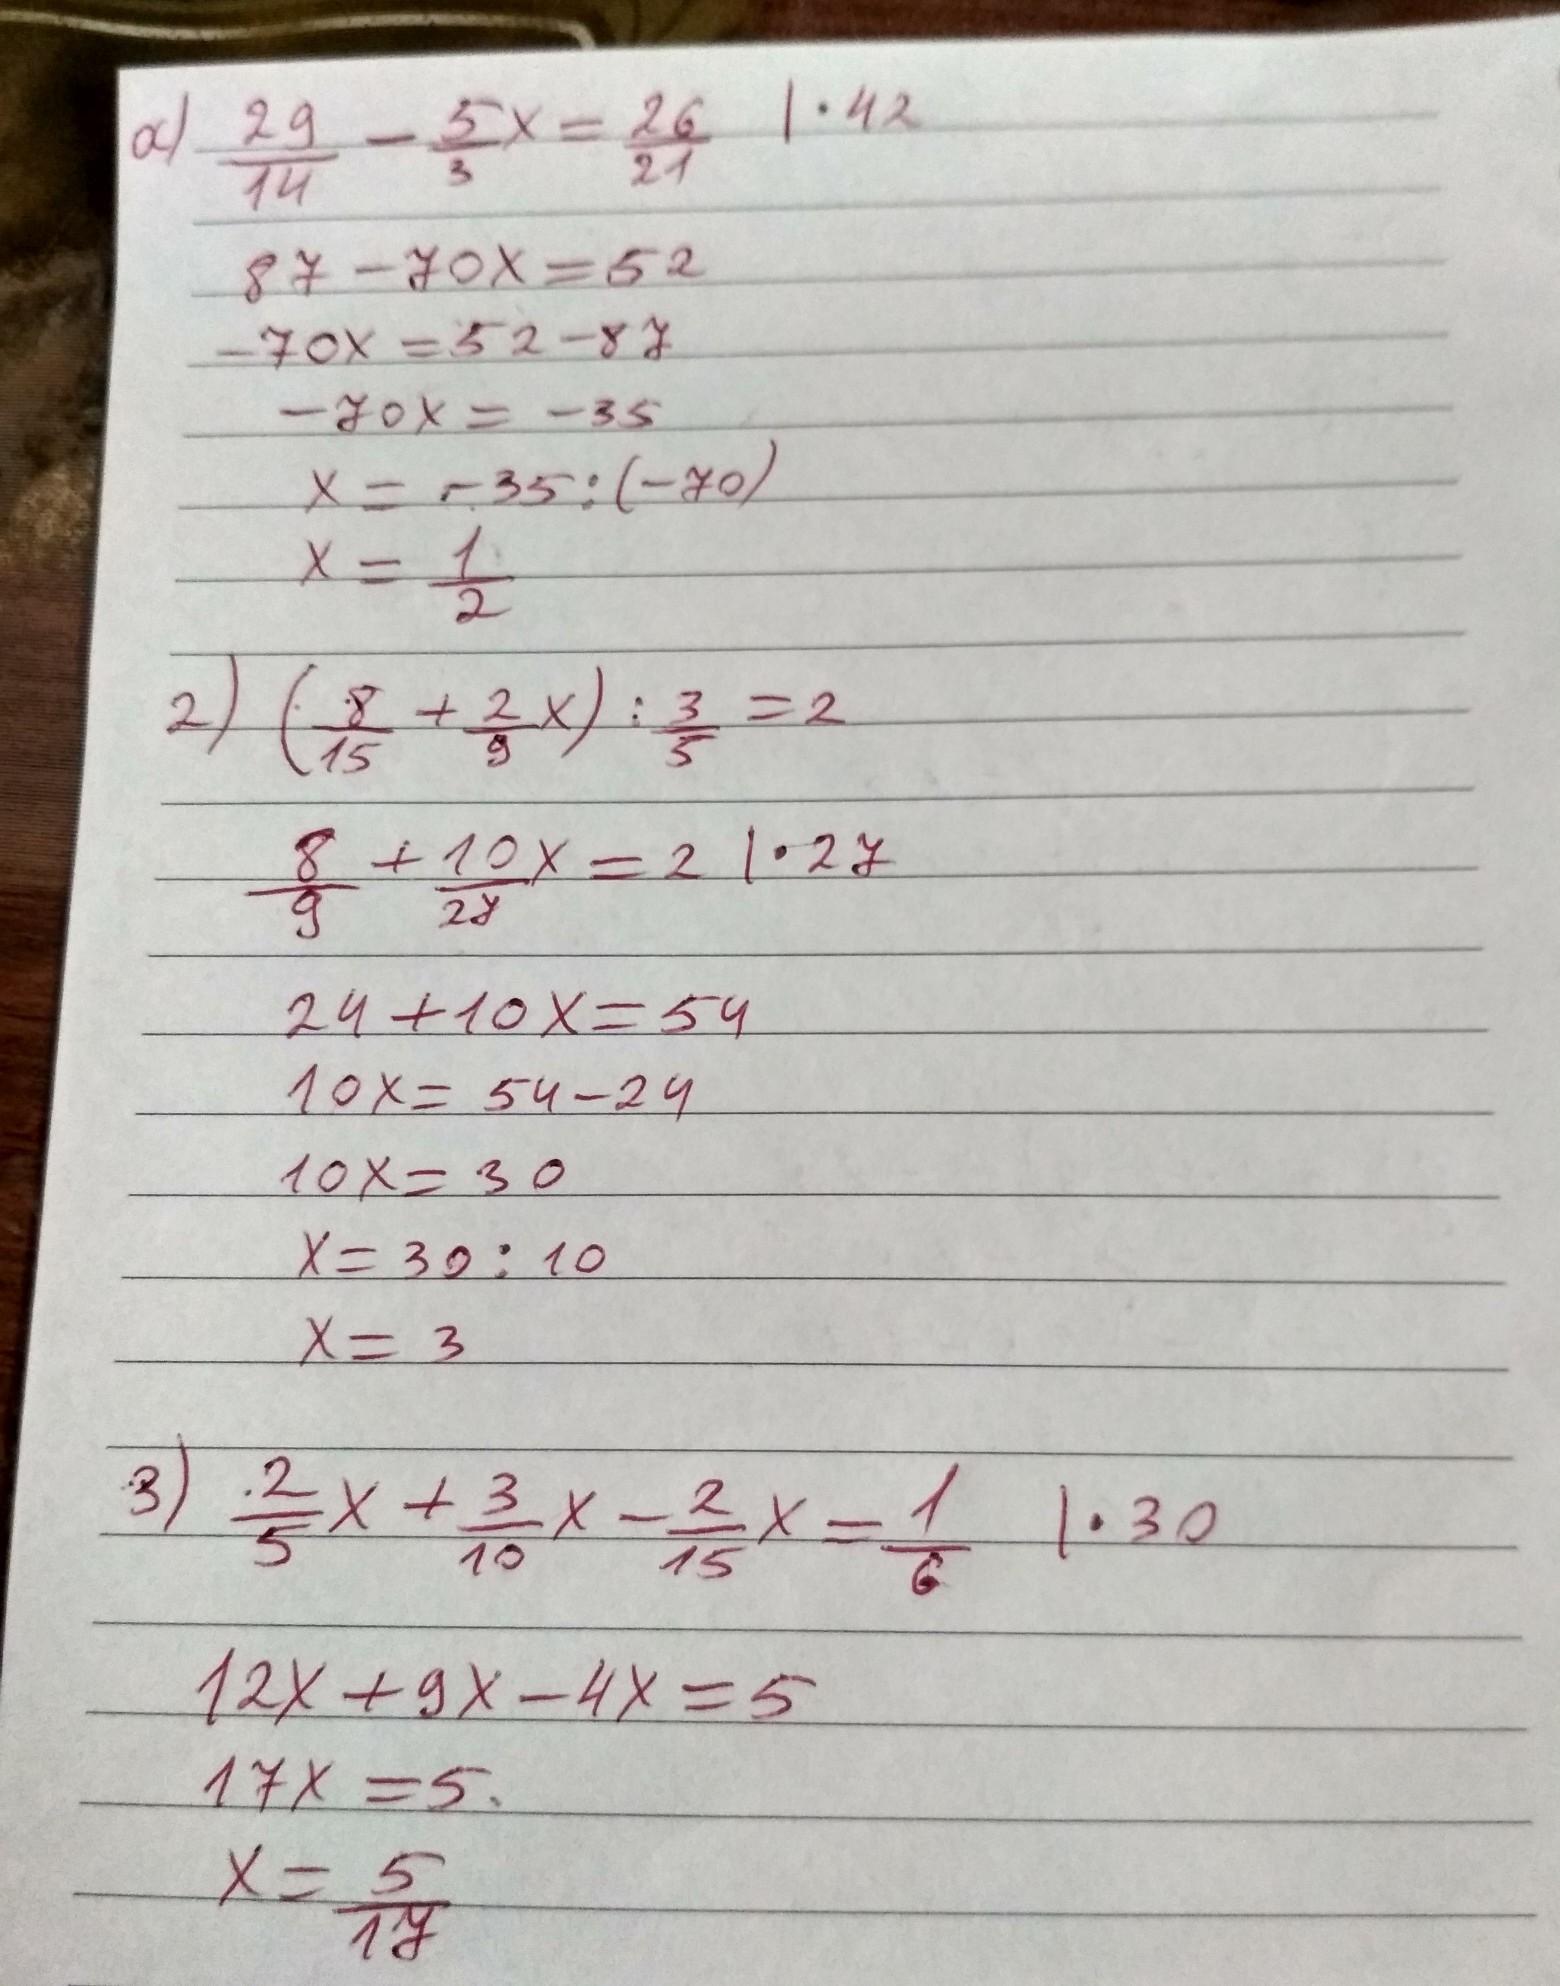 a) 29/14 - 5/3 x = 26/21 | · 42
87 - 70x = 52
-70x = 52 - 87
-70x = -35
x = -35 : (-70)
x = 1/2
2) (8/15 + 2/9 x) : 3/5 = 2
8/9 + 10/27 x = 2 | · 27
24 + 10x = 54
10x = 54 - 24
10x = 30
x = 30 : 10
x = 3
3) 2/5 x + 3/10 x - 2/15 x = 1/6 | · 30
12x + 9x - 4x = 5
17x = 5.
x = 5/17